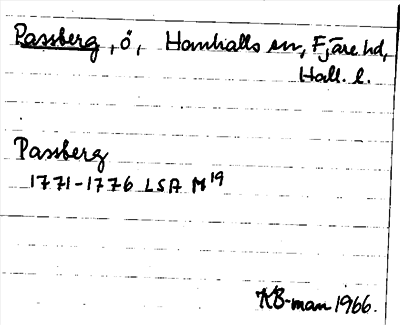 Passberg, ö, Hanhalls sn, Fjäre hd,
Hall. l.
Passberg
1771-1776 LSA M19
KB-man 1966.